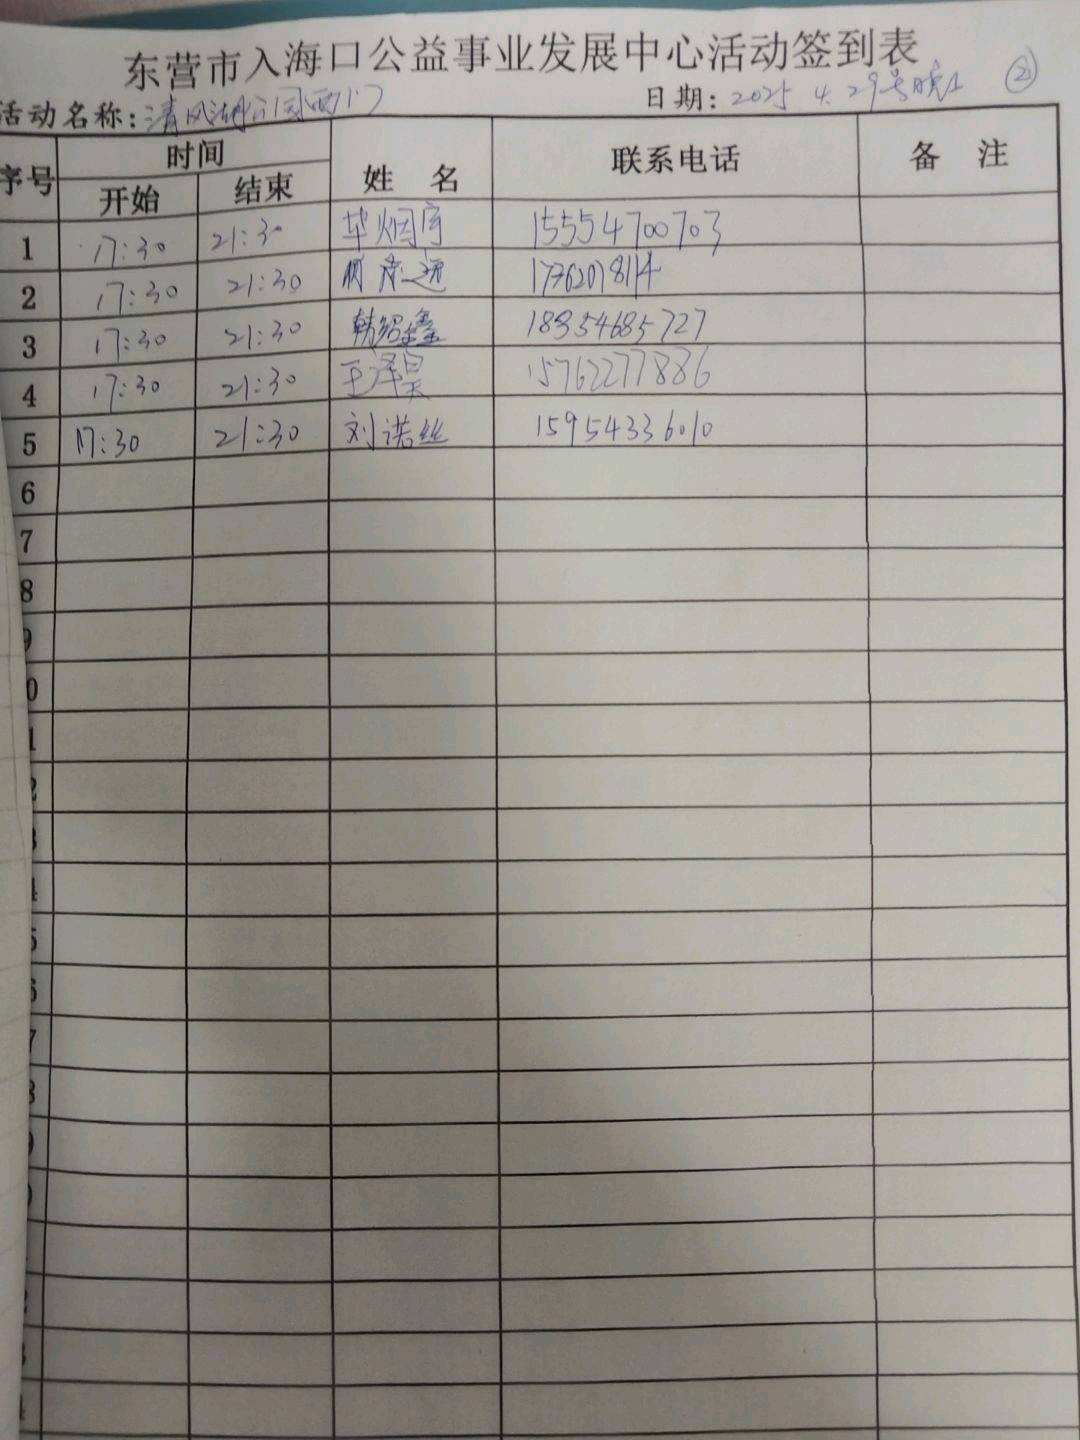 东营市入海口公益事业发展中心活动签到表
②
活动名称:清风湖公园西门 日期:2025 4.29号晚上
序号 时间 姓 名 联系电话 备 注
开始 结束
1 17:30 21:30 毕烟宇 15554700703
2 17:30 21:30 17762078114
3 17:30 21:30 韩绍鑫 18954685727
4 17:30 21:30 王泽昊 15762277886
5 17:30 21:30 刘诺丝 15954336010
6
7
8
9
0
1
2
3
4
5
6
7
8
9
0
2
3
4